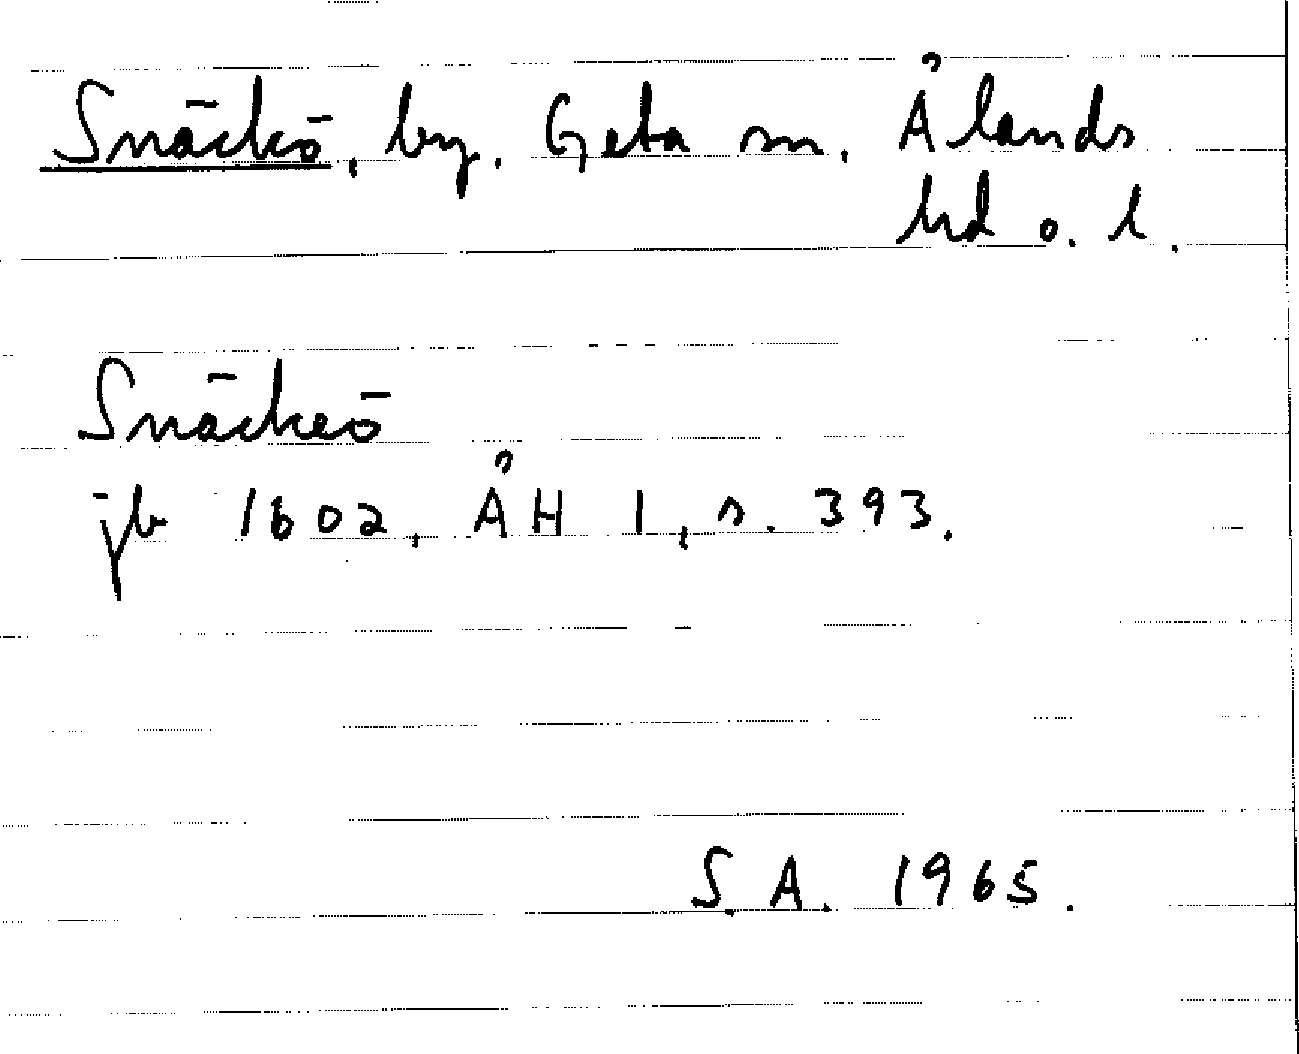 Snäckö, by. Geta sn. Ålands
hd o. l.
Snäckeö
jb 1602, ÅH 1, s. 393.
S.A. 1965.